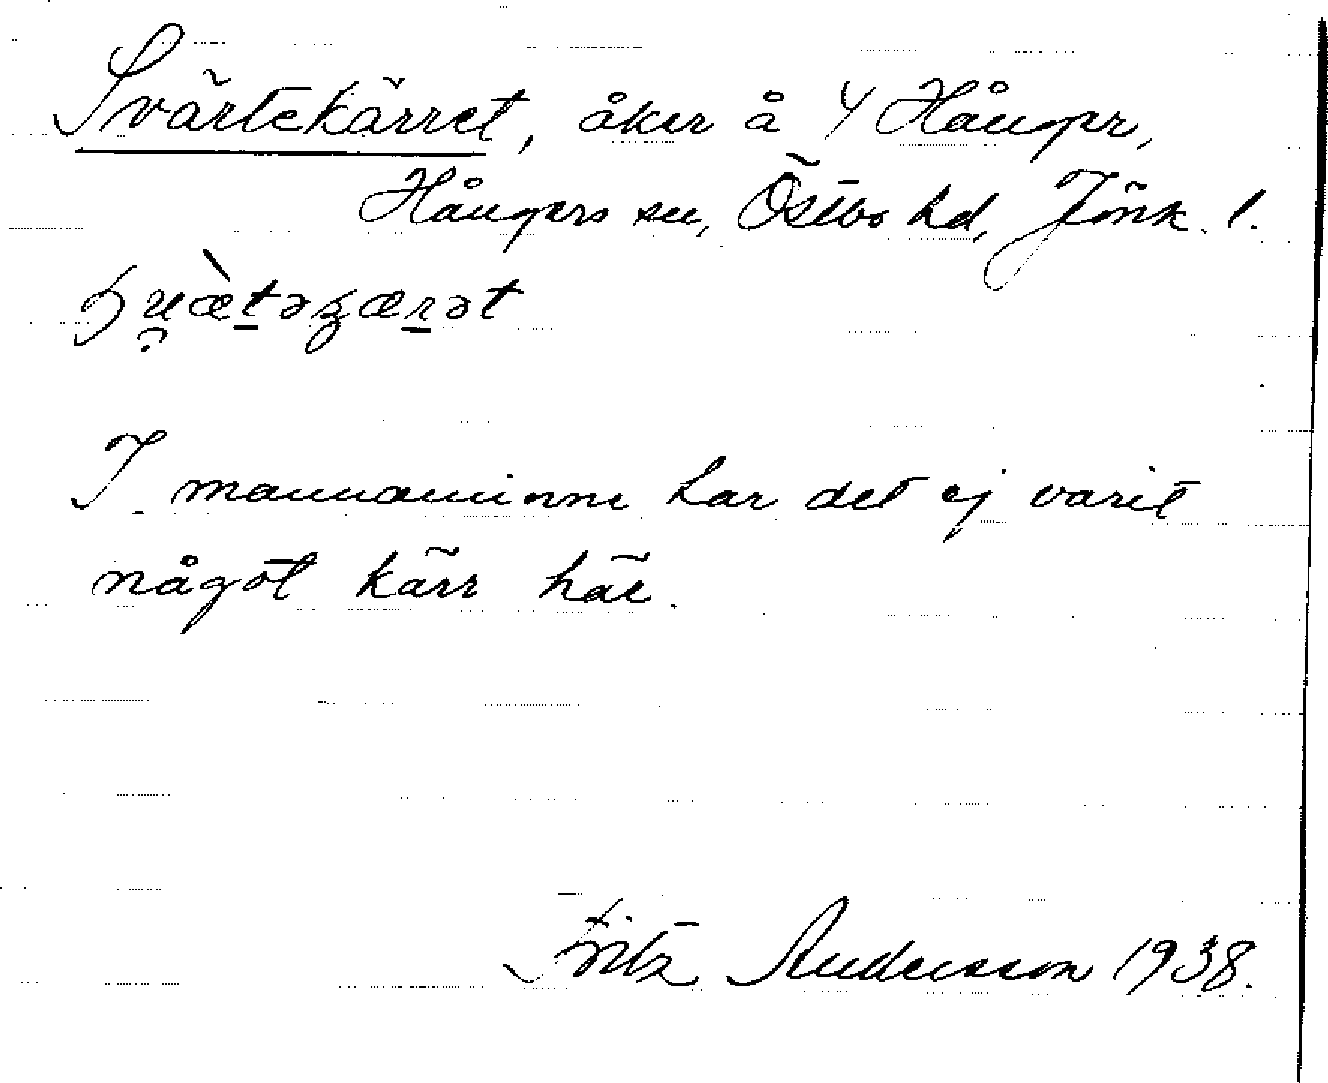 Svärtekärret, åker å 4 Hånger,
Hångers sn, Östbo hd, Jönk. l.
I mannaminne har det ej varit
något kärr här.
Fritz Andersson 1938.